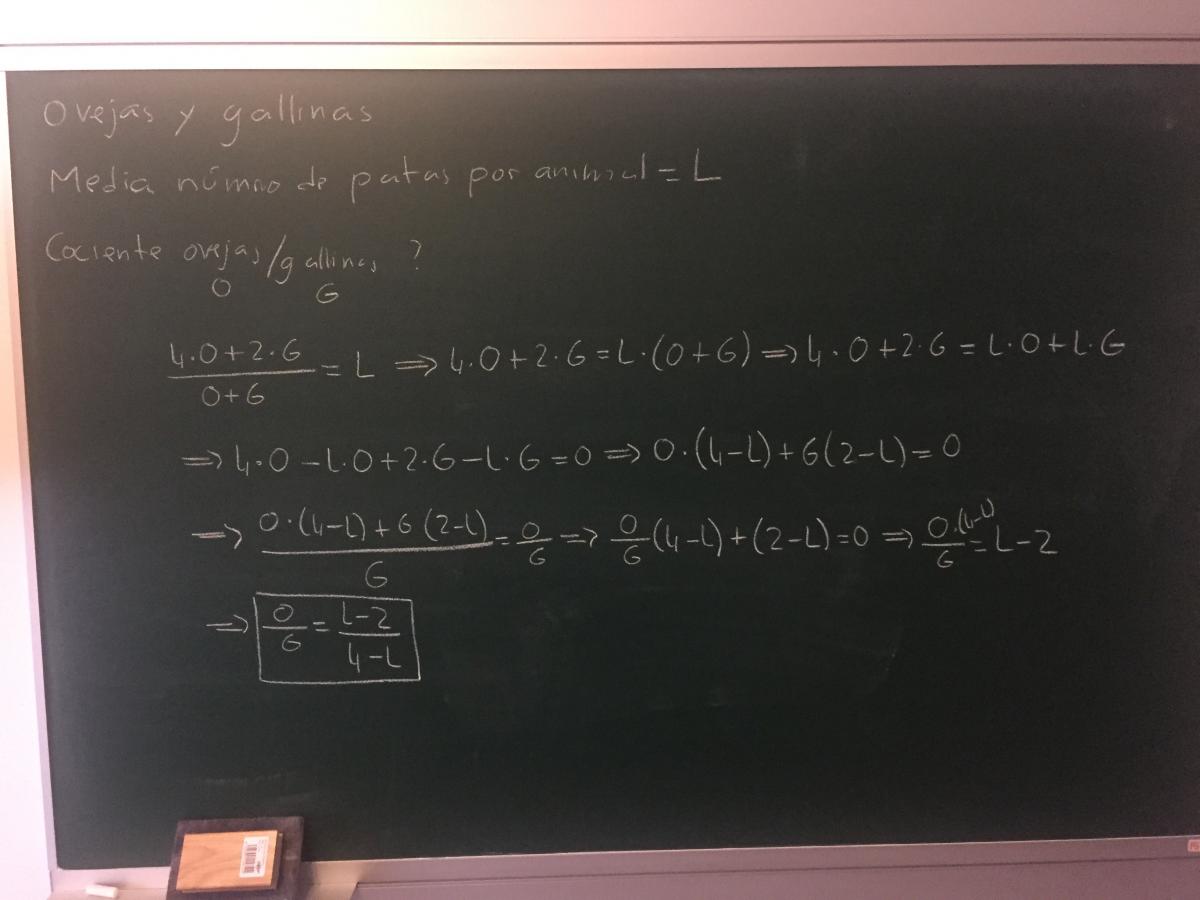 Ovejas y gallinas
Media númro de patas por animal = L
Cociente ovejas/gallinas ?
O G
(4·O+2·G)/(O+G) = L ⇒ 4·O+2·G = L·(O+G) ⇒ 4·O+2·G = L·O+L·G
⇒ 4·O-L·O+2·G-L·G=0 ⇒ O·(4-L)+G(2-L)=0
⇒ (O·(4-L)+G(2-L))/G = 0/G ⇒ O/G (4-L)+(2-L)=0 ⇒ O·(4-L)/G = L-2
⇒ O/G = (L-2)/(4-L)